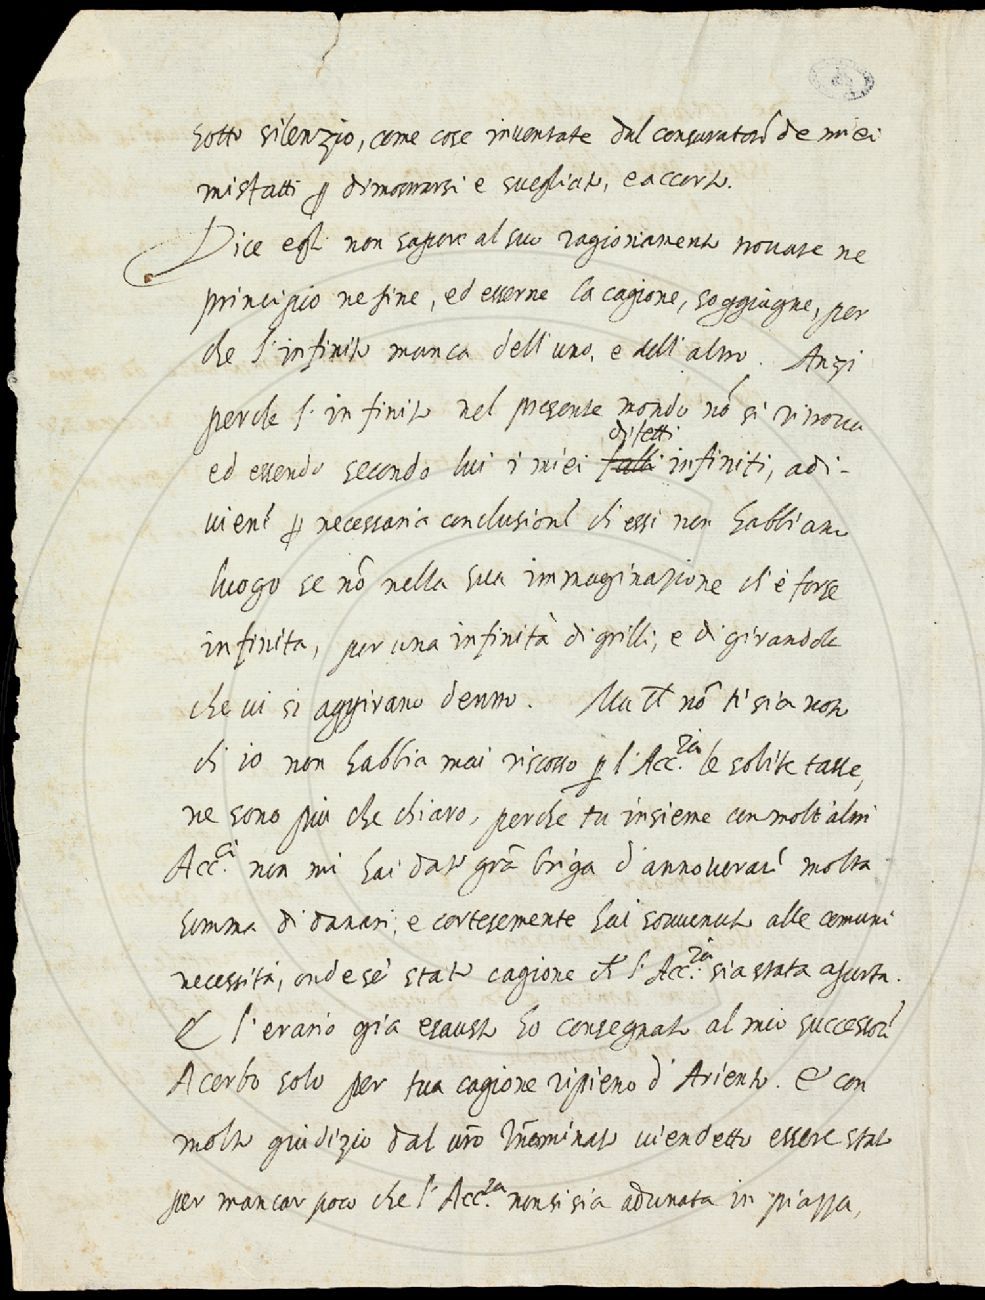 sotto silenzio, come cose inventate dal censuratorẽ de miei
misfatti ꝑ dimostrarsi e svegliato, e accorto.
Dice egli non sapere al suo ragionamento trovare ne
principio ne fine, ed esserne la cagione, soggiugne, per
che l'infinito manca dell'uno, e dell'altro. Anzi
perche l'infinito nel presente mondo nõ si ritrova
ed essendo secondo lui i miei falli difetti infiniti, adi-
vienẽ ꝑ necessaria conclusionẽ ch essi non habbiano
luogo se nõ nella sua immaginazione ch'è forse
infinita, per una infinità di grilli, e di girandole
che vi si aggirano dentro. Ma ch nõ ti sia noto
ch io non habbia mai riscosso ꝑ l'Acc.zia le solite tasse,
ne sono piu che chiaro, perche tu insieme con molt'altri
Acc.ci non mi hai dato grã briga d'annoverarẽ molta
somma di danari, e cortesemente hai sovvenuto alle comuni
necessità, onde sè stato cagione ch l'Acc.zia sia stata aperta.
E l'erario già esausto ho consegnato al mio successorẽ
Acerbo solo per tua cagione ripieno d'Ariento. E con
molto giudizio dal vr̃o Inõminato vien detto essere stato
per mancar poco che l'Acc.za non si sia adunata in piazza,